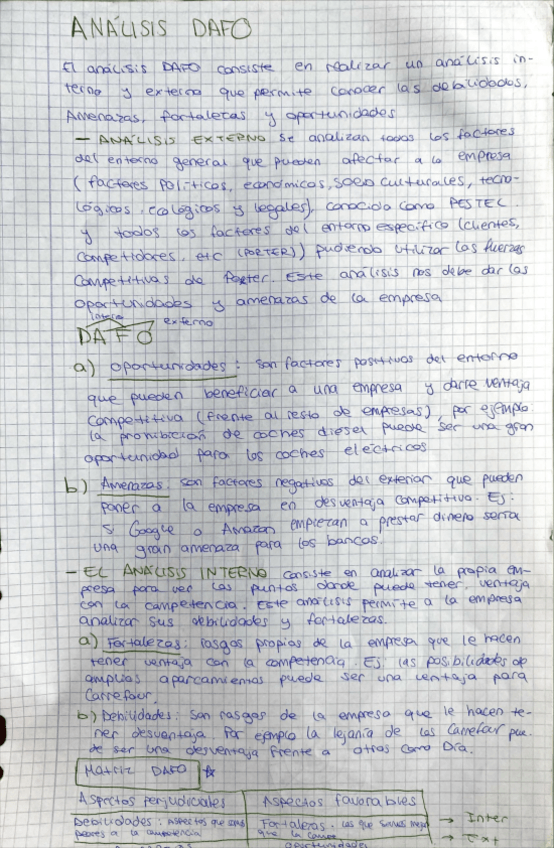 ANÁLISIS DAFO
El análisis DAFO consiste en realizar un análisis in-
terno y externo que permite conocer las debilidades,
Amenazas, fortalezas y oportunidades
- ANÁLISIS EXTERNO se analizan todos los factores
del entorno general que pueden afectar a la empresa
(factores políticos, económicos, socio culturales, tecno-
lógicos, ecológicos y legales), conocido como PESTEL
y todos los factores del entorno específico (clientes,
competidores, etc (PORTER)) pudiendo utilizar las fuerzas
competitivas de Porter. Este análisis nos debe dar las
oportunidades y amenazas de la empresa
externo
DAFO
a) oportunidades: son factores positivos del entorno
que pueden beneficiar a una empresa y darle ventaja
competitiva (frente al resto de empresas), por ejemplo:
la prohibición de coches diesel puede ser una gran
oportunidad para los coches eléctricos
b) Amenazas: son factores negativos del exterior que pueden
poner a la empresa en desventaja competitiva. Ej:
si Google o Amazon empiezan a prestar dinero sería
una gran amenaza para los bancos.
- EL ANÁLISIS INTERNO consiste en analizar la propia em-
presa para ver los puntos donde puede tener ventaja
con la competencia. Este análisis permite a la empresa
analizar sus debilidades y fortalezas.
a) Fortalezas: rasgos propios de la empresa que le hacen
tener ventaja con la competencia. Ej: las posibilidades de
amplios aparcamientos puede ser una ventaja para
Carrefour.
b) Debilidades: son rasgos de la empresa que le hacen te-
ner desventaja. Por ejemplo la lejanía de los Carrefour pue-
de ser una desventaja frente a otros como Dia.
Matriz DAFO
Aspectos perjudiciales Aspectos favorables
Debilidades: Aspectos que somos Fortalezas: Las que somos mejor → Inter
peores a la competencia que la → Ext
oportunidades